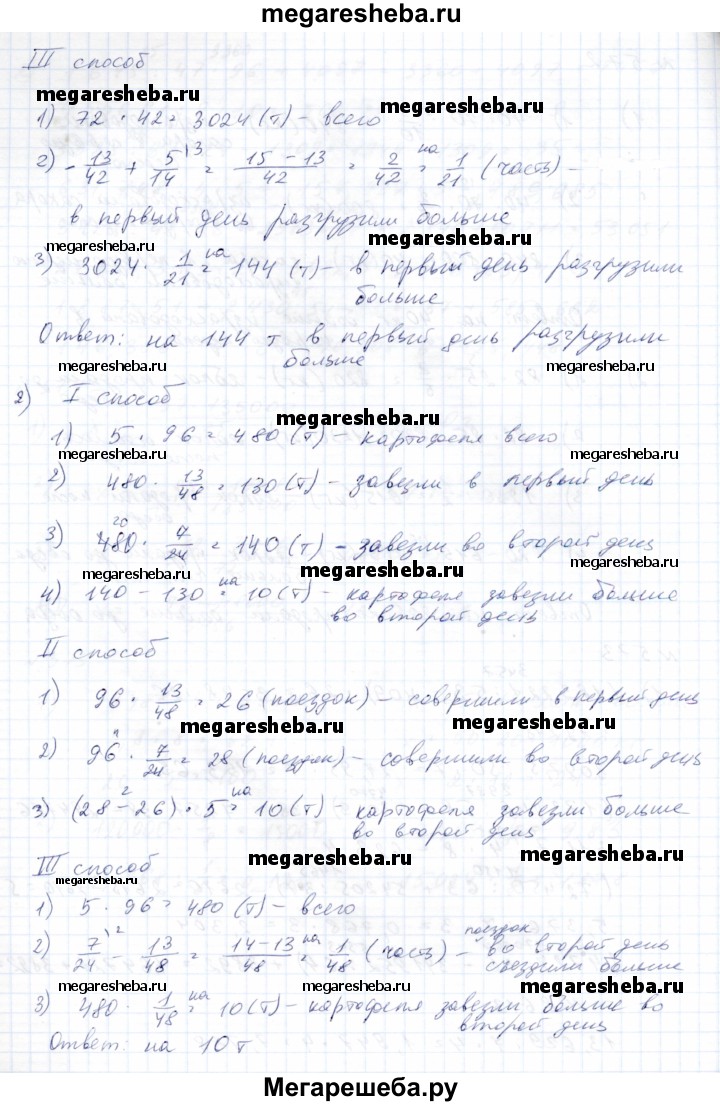 megaresheba.ru
III способ
megaresheba.ru
1) 72 · 42 = 3024 (т) – всего
megaresheba.ru
2) - 13/42 + 5/14 \3 = 15 - 13/42 = 2/42 = на 1/21 (часть) –
в первый день разгрузили больше
megaresheba.ru megaresheba.ru
3) 3024 · 1/21 = на 144 (т) – в первый день разгрузили
больше
Ответ: на 144 т в первый день разгрузили
больше
megaresheba.ru megaresheba.ru
2) I способ
megaresheba.ru
1) 5 · 96 = 480 (т) – картофеля всего
megaresheba.ru megaresheba.ru
2) 480 · 13/48 = 130 (т) – завезли в первый день
3) 480 20 · 7/24 = 140 (т) – завезли во второй день
megaresheba.ru megaresheba.ru megaresheba.ru
4) 140 - 130 = на 10 (т) – картофеля завезли больше
во второй день
II способ
1) 96 · 13/48 = 26 (поездок) – совершили в первый день
megaresheba.ru megaresheba.ru
2) 96 · 7/24 = 28 (поездок) – совершили во второй день
3) (28 - 26) 2 · 5 = на 10 (т) – картофеля завезли больше
во второй день
III способ
megaresheba.ru megaresheba.ru
megaresheba.ru
1) 5 · 96 = 480 (т) – всего
2) 7/24 \2 - 13/48 = 14 - 13/48 = на 1/48 (часть) – поездок во второй день
съездили больше
megaresheba.ru megaresheba.ru
3) 480 · 1/48 = на 10 (т) – картофеля завезли больше во
второй день
Ответ: на 10 т
Мегарешеба.ру